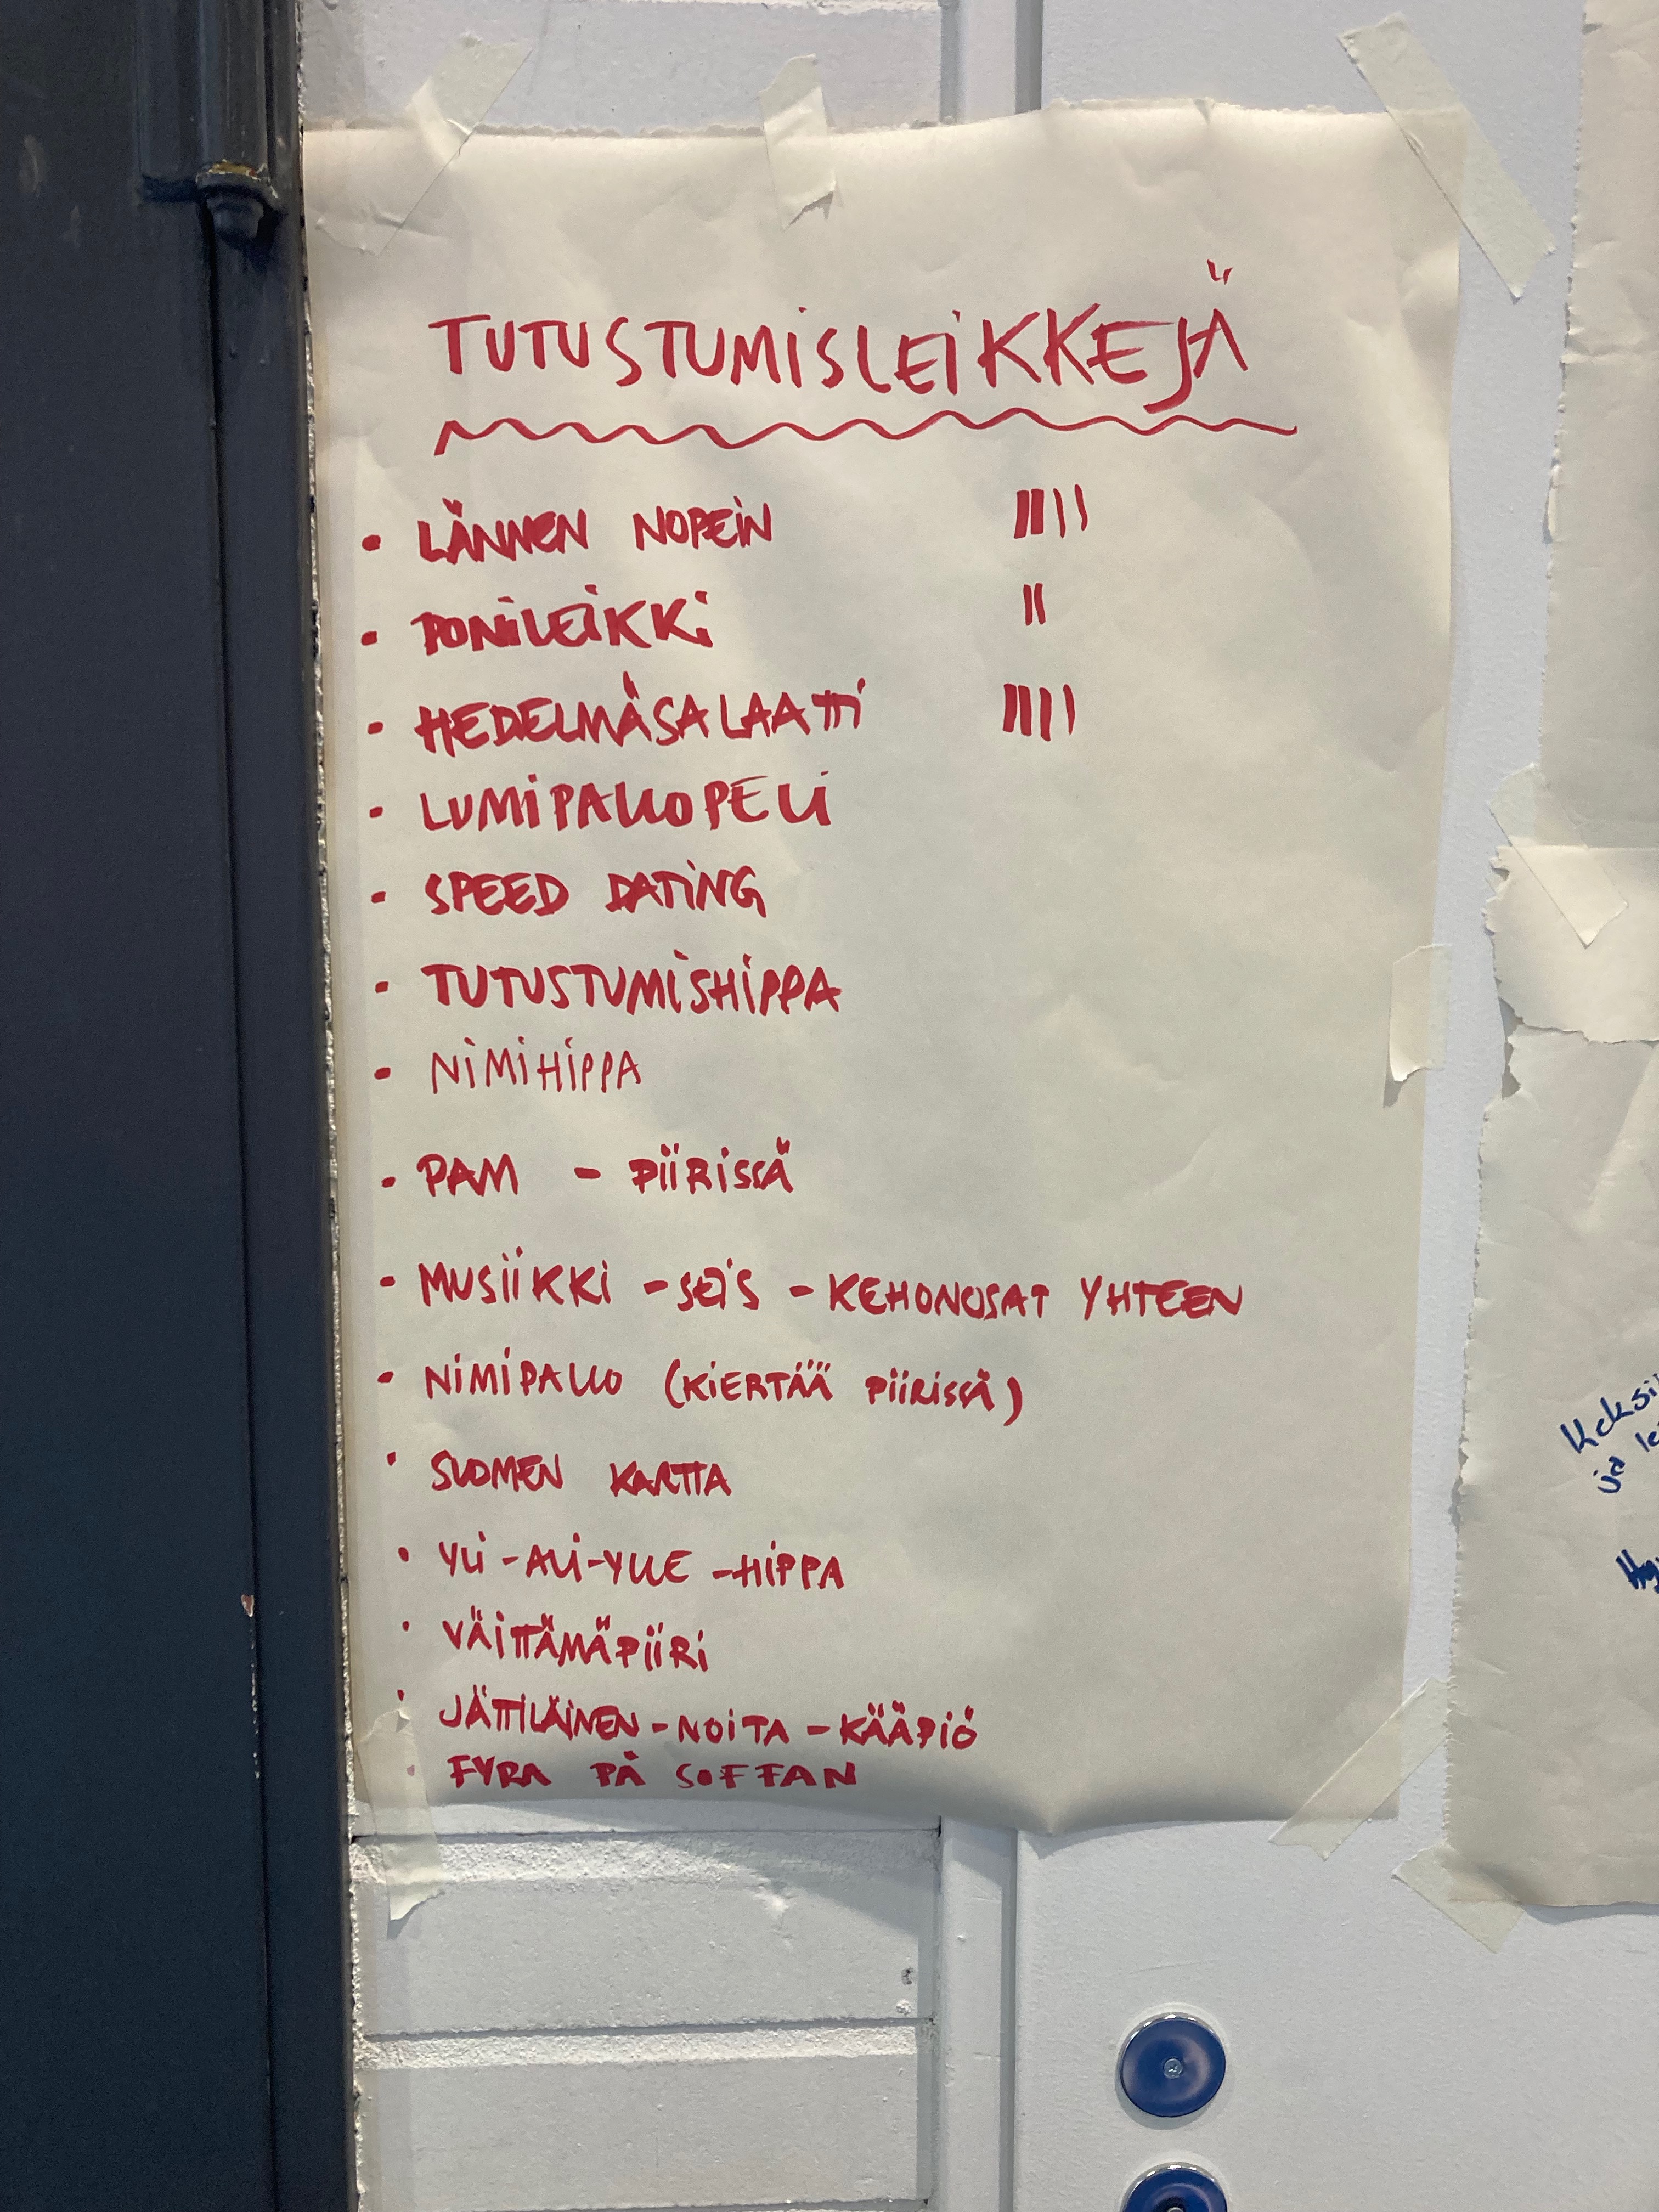 TUTUSTUMISLEIKKEJÄ
• LÄNNEN NOPEIN IIIII
• PONILEIKKI II
• HEDELMÄSALAATTI IIII
• LUMIPALLOPELI
• SPEED DATING
• TUTUSTUMISHIPPA
• NIMIHIPPA
• PAM - PIIRISSÄ
• MUSIIKKI - SEIS - KEHONOSAT YHTEEN
• NIMIPALLO (KIERTÄÄ PIIRISSÄ)
• SUOMEN KARTTA
• YLI-ALI-YLLE -HIPPA
• VÄITTÄMÄPIIRI
• JÄTTILÄINEN-NOITA-KÄÄPIÖ
• FYRA PÅ SOFFAN